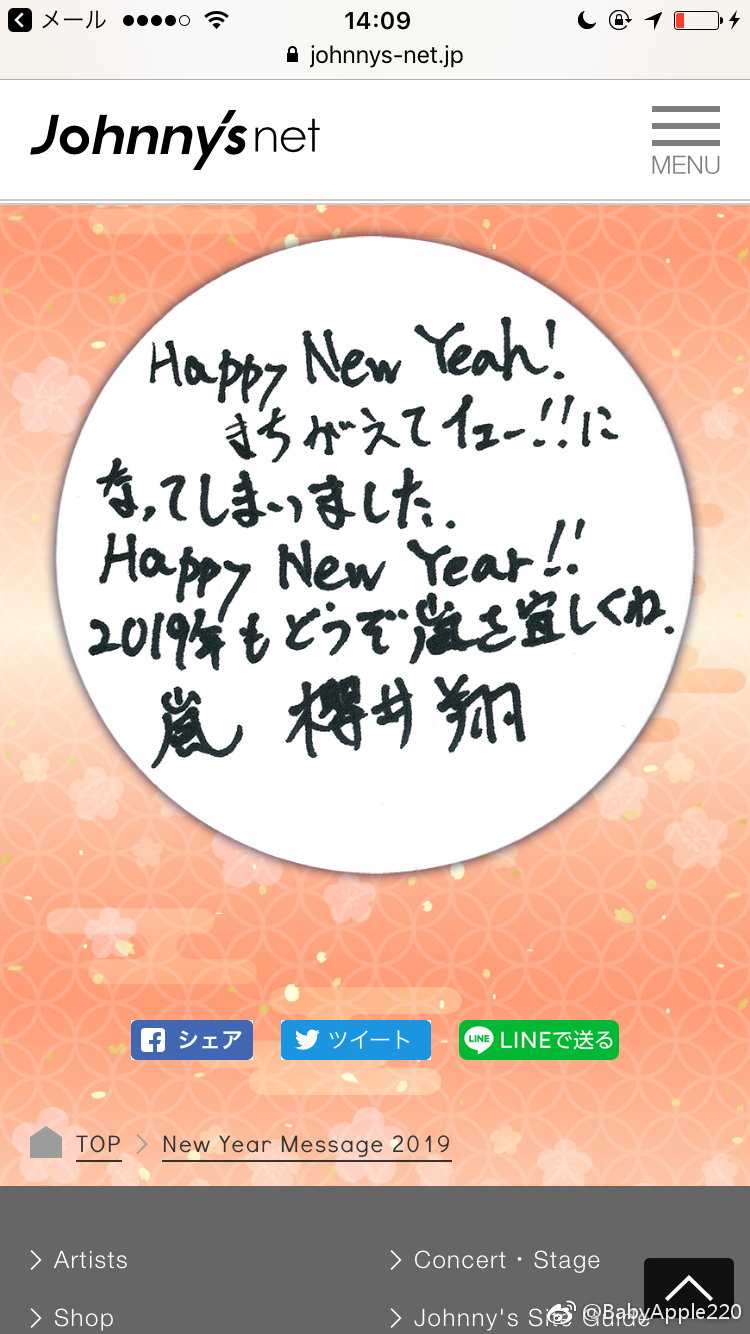 メール
14:09
johnnys-net.jp
Johnny's net
MENU
Happy New Yeah!
まちがえてイェー!!に
なってしまいました.
Happy New Year!!
2019年もどうぞ嵐を宜しくね.
嵐 櫻井翔
シェア
ツイート
LINE LINEで送る
TOP
New Year Message 2019
Artists
Concert・Stage
Shop
Johnny's Site Guide
@BabyApple220